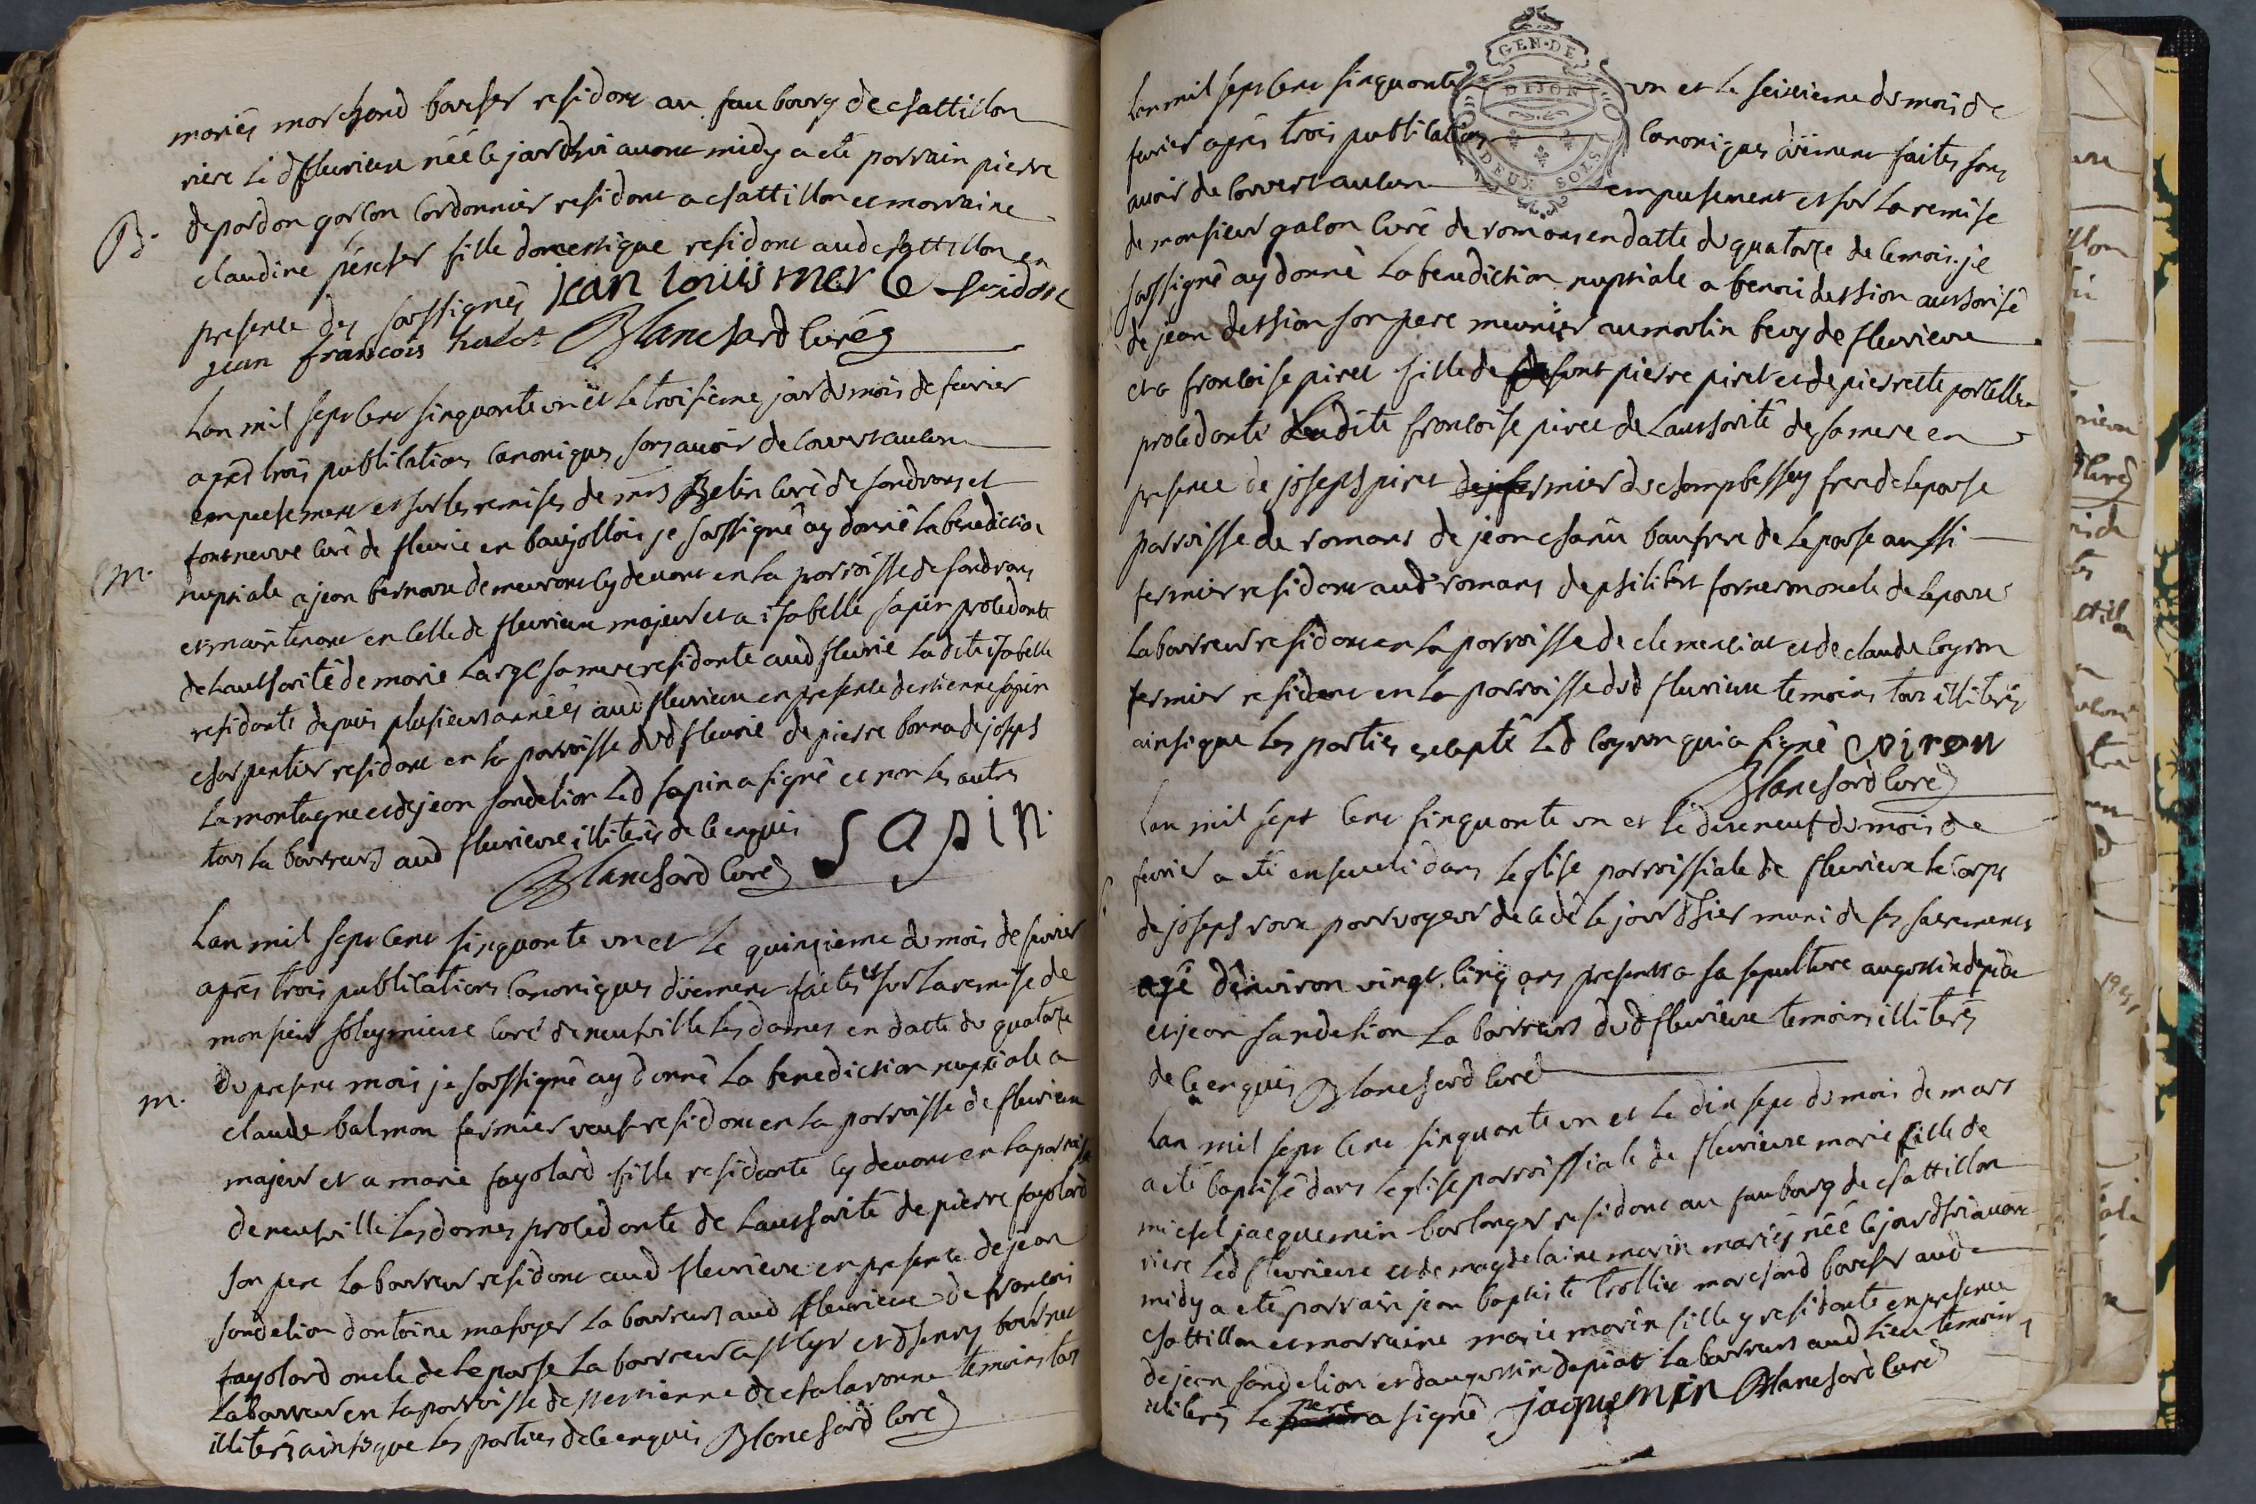 mariés marchand boucher residont au faubourg de chattillon
riere led fleurieux née ce jourdhui auont midy a eté parrain pierre
B.
depardon garcon cordonnier residont a chattillon et marraine
claudine péscher fille domestique residont aud chattillon en
presence des soussignés jean louis merle
jean francois Blanchard curé
Lan mil sept cent sinquonte un et le troisieme jour du mois de feurier
apres trois publications canoniques sons auoir decouuert aucun
empechement et sur les remises de mrs Belin curé de sandrons et
curé de fleurie en baujollois je soussigné ay donné la benediction
m.
nuptiale a jean bernoux demeuront cy deuont en la parroisse de sandrons
et maintenont en celle de fleurieux majeur et a isabelle sapin procedonte
de lauthorité de marie large sa mere residonte aud fleurie ladite isabelle
residonte depuis plusieurs années aud fleurieux en presence destienne sapin
charpentier residont en la parroisse dud fleurie de pierre bonna de joseph
lamontagne et de jean sondelion led sapin a signé et non les autres
tous laboureurs aud fleurieux illiterés de ce enquis SAPIN.
Blanchard curé
Lan mil sept cent sinquonte un et le quinzieme du mois de feurier
apres trois publications canoniques düement faites et sur la remise de
monsieur soleymieux curé de neufville les dames en datte du quatorze
du present mois je soussigné ay donné la benediction nuptiale a
m.
claude balmon fermier veuf residont en la parroisse de fleurieux
majeur et a marie fayolard fille residonte cy deuont en la parroisse
de neufville les dames procedonte de lauthorité de pierre fayolard
son pere laboureur residont aud fleurieux en presence de jean
sondelion dontoine mafoyer laboureurs aud fleurieux de froncois
fayolard oncle de lepouse laboureur a st cyr et dhenry bournet
laboureur en la parroisse de st estienne de chalaronne temoins tous
illiterés ainsi que les parties de ce enquis Blanchard curé
GEN. DE
DIJON
DEUX SOLS
Lan mil sept cent sinquonte un et le seizieme du mois de
feurier aprés trois publications canoniques düement faites sons
auoir decouuert aucun empechement et sur la remise
de monsieur galon curé de romans en datte du quatorze de ce mois. je
soussigné ay donné la benediction nuptiale a benoi dession authorisé
de jean dession son pere meunier au moulin beuy de fleurieux
et a froncoise piret fille de defunt pierre piret et de pierrette portallier
procedonte ladite froncoise piret de lauthorité de sa mere en
presence de joseph piret fermier du chompbessey frere de lepouse
parroisse de romans de jean chanu baufrere de lepouse aussi
fermier residont aud romans de philibert fornermon oncle de lepouse
laboureur residont en la parroisse de clemenciat et de claude coyron
fermier residont en la parroisse dud fleurieux temoins tous illiterés
ainsi que les parties excepté led coyron qui a signé Coiron
Blanchard curé
Lan mil sept cent sinquonte un et le dixneuf du mois de
feurier a eté enseueli dans leglise parroissiale de fleurieux le corps
de joseph roux pourvoyeur decedé le jour dhier muni de ses sacrements
agé denviron vingt cinq ans presents a sa sepulture augustin depiat
et jean sandelion laboureurs dud fleurieux temoins illiterés
de ce enquis Blanchard curé
Lan mil sept cent sinquonte un et le dix sept du mois de mars
a eté baptisé dans leglise parroissiale de fleurieux marie fille de
michel jacquemin boulonger residont au faubourg de chattillon
riere led fleurieux et de magdelaine marin mariés née ce jourdhui auont
midy a eté parrain jean baptiste trollier marchand boucher aud
chattillon et marraine marie marin fille y residonte en presence
de jean sondelion et daugustin depiat laboureurs aud lieu temoins
illiterés le pere a signé jaquemin Blanchard curé